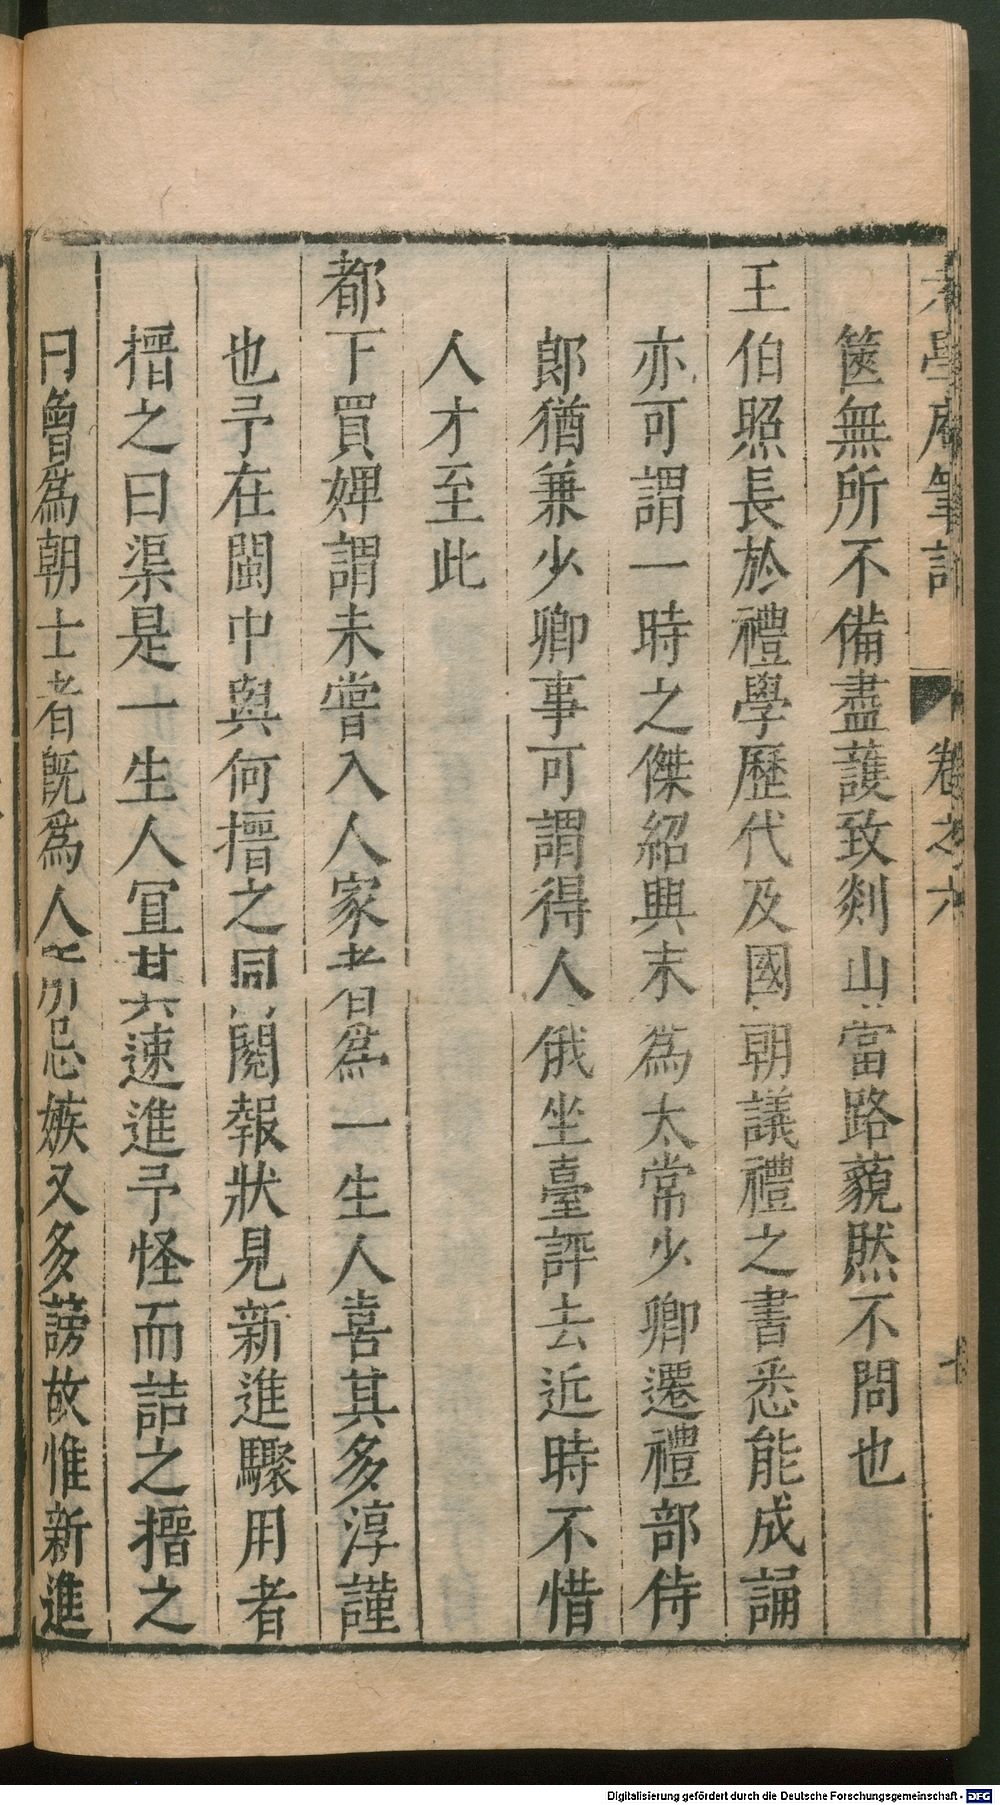 老學庵筆記 卷之六
篋無所不備盡護致剡山當路藐然不問也
王伯照長於禮學歷代及國朝議禮之書悉能成誦
亦可謂一時之傑紹興末為太常少卿遷禮部侍
郎猶兼少卿事可謂得人俄坐臺評去近時不惜
人才至此
都下買婢謂未嘗入人家者為一生人喜其多淳謹
也予在閩中與何搢之同閱報狀見新進驟用者
搢之曰渠是一生人宜其速進予怪而詰之搢之
曰曾為朝士者既為人所忌嫉又多謗故惟新進
Digitalisierung gefördert durch die Deutsche Forschungsgemeinschaft - DFG